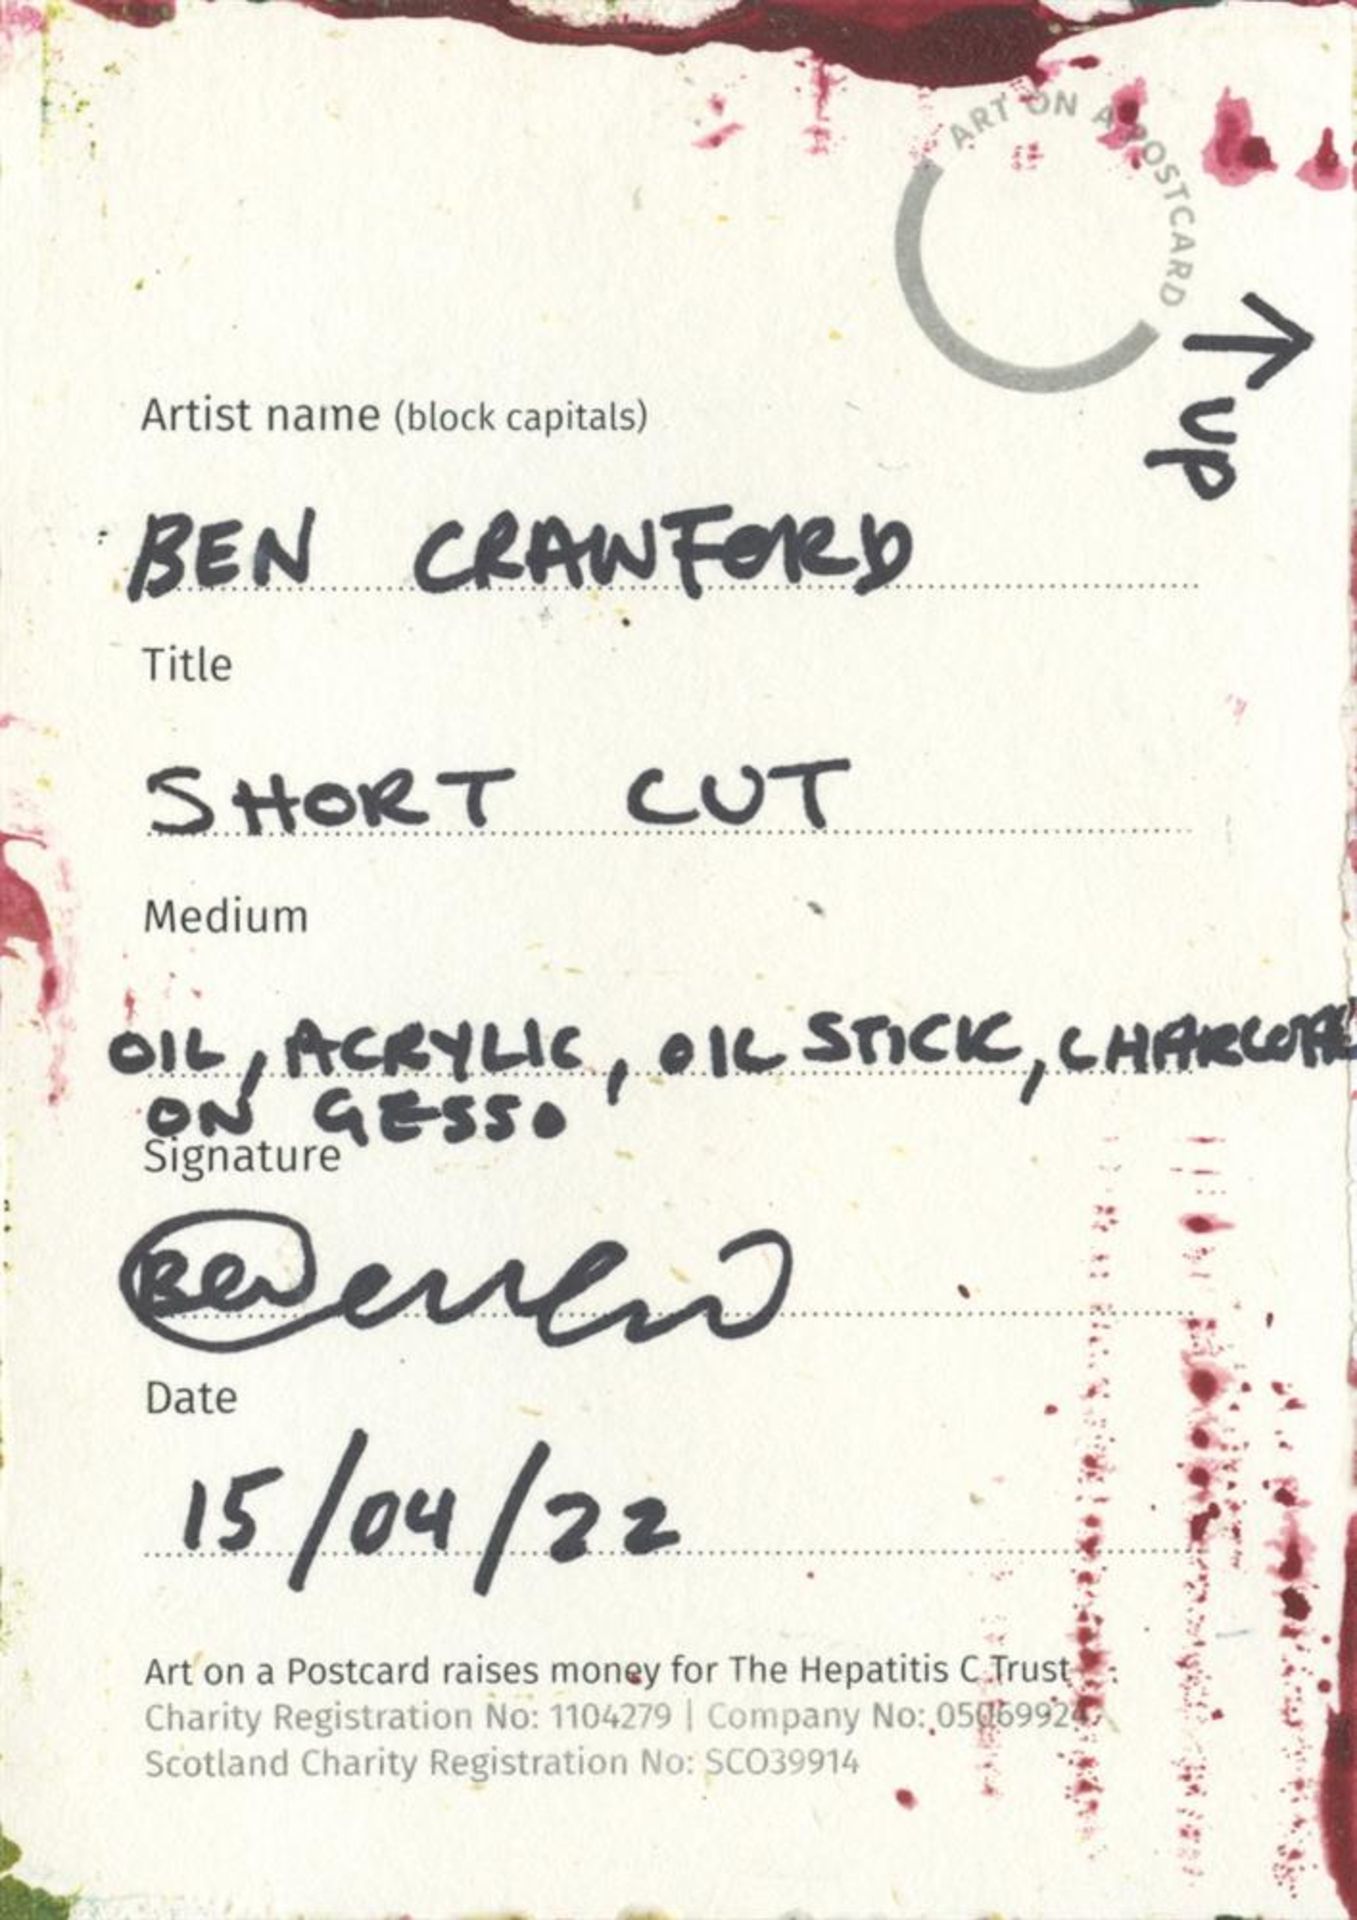 ART ON A POSTCARD
UP
Artist name (block capitals)
BEN CRAWFORD
Title
SHORT CUT
Medium
OIL, ACRYLIC, OIL STICK, CHARCOAL
ON GESSO
Signature
BEN
Date
15/04/22
Art on a Postcard raises money for The Hepatitis C Trust
Charity Registration No: 1104279 | Company No: 05069924
Scotland Charity Registration No: SCO39914